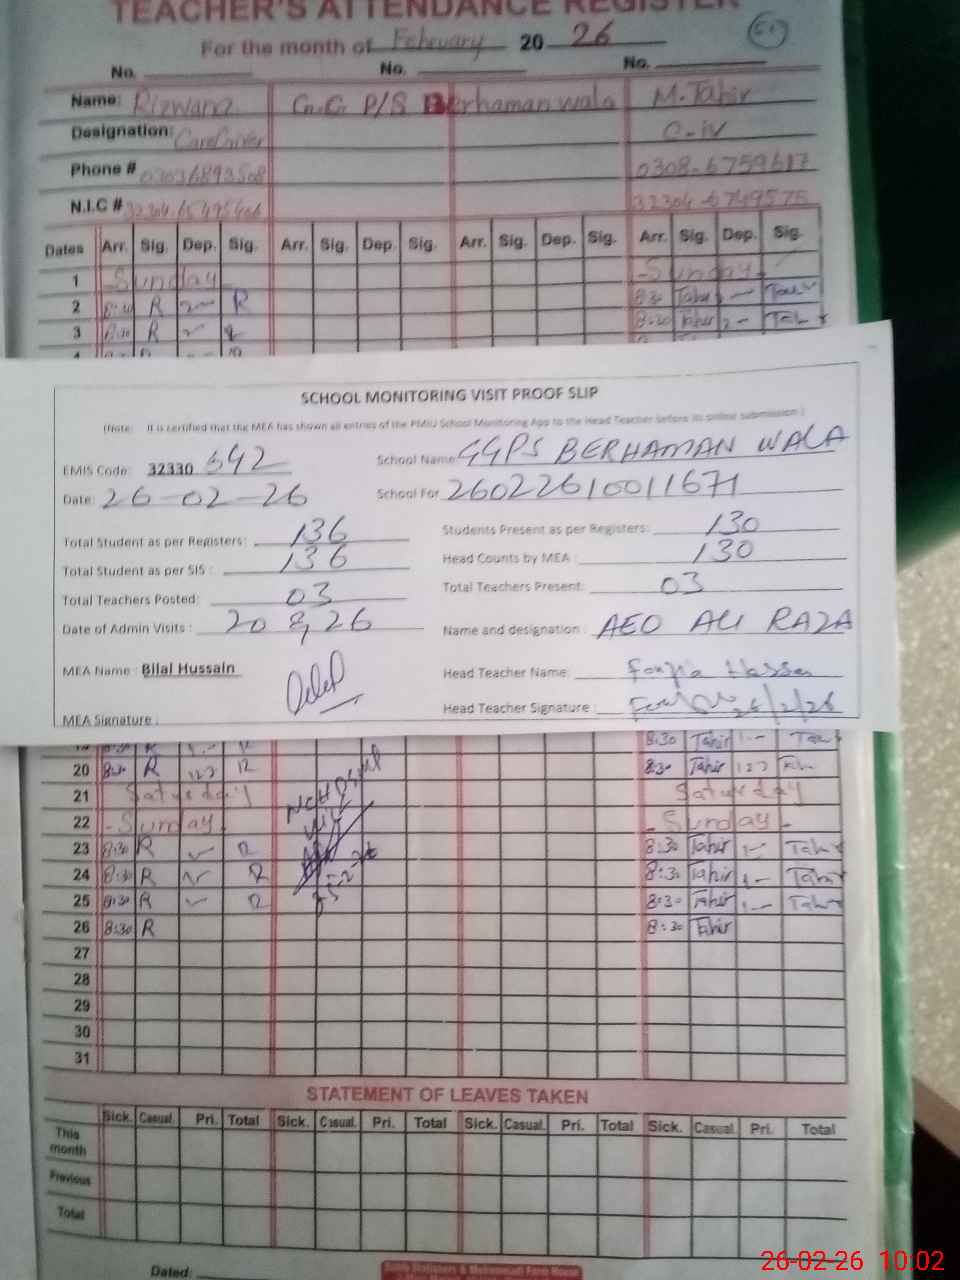 TEACHER'S ATTENDANCE REGISTER
For the month of February 20 26
No. No. No.
Name: Rizwana G.G P/S Berhaman wala M. Tahir
Designation: CareGiver C-iv
Phone # 03036893508 0308-6759617
N.I.C # 32304 6749575
Dates Arr. Sig. Dep. Sig. Arr. Sig. Dep. Sig. Arr. Sig. Dep. Sig. Arr. Sig. Dep. Sig.
1 Sunday Sunday
2 8:30 R R 8:30 Tahir
3 8:30 R 8:30 Tahir
4
SCHOOL MONITORING VISIT PROOF SLIP
(Note: It is certified that the MEA has shown all entries of the PMIU School Monitoring App to the Head Teacher before its online submission)
EMIS Code: 32330 642 School Name GGPS BERHAMAN WALA
Date: 26-02-26 School For 26022610011671
Total Student as per Registers: 136 Students Present as per Registers: 130
Total Student as per SIS : 136 Head Counts by MEA : 130
Total Teachers Posted: 03 Total Teachers Present: 03
Date of Admin Visits : 20 & 26 Name and designation : AEO ALI RAZA
MEA Name : Bilal Hussain Head Teacher Name: Fouzia Hassan
MEA Signature : Head Teacher Signature : 26/2/26
19 8:30 R 8:30 Tahir
20 8:30 R 8:30 Tahir
21 Saturday Saturday
22 Sunday Sunday
23 8:30 R 8:30 Tahir
24 8:30 R 8:30 Tahir
25 8:30 R 8:30 Tahir
26 8:30 R 8:30 Tahir
27
28
29
30
31
STATEMENT OF LEAVES TAKEN
Sick. Casual. Pri. Total Sick. Casual. Pri. Total Sick. Casual. Pri. Total Sick. Casual. Pri. Total
This month
Previous
Total
Dated:
26-02-26 10:02